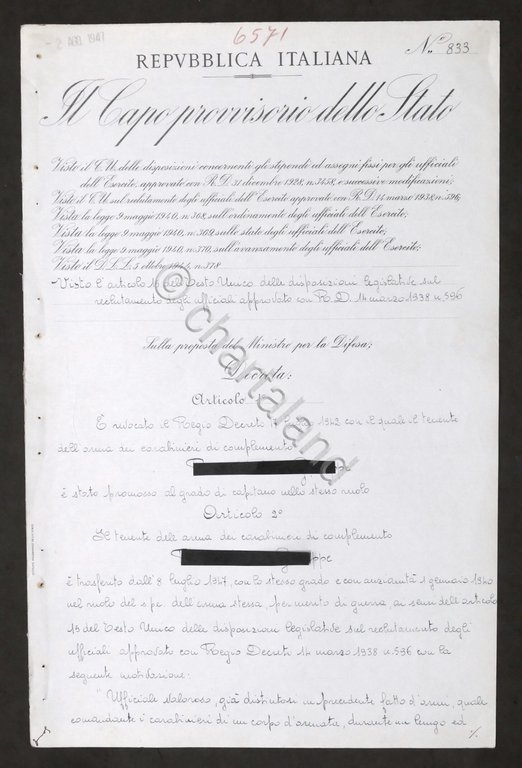 2 AGO 1947
6571
N.° 833
REPVBBLICA ITALIANA
Il Capo provvisorio dello Stato
Visto il T.U. delle disposizioni concernenti gli stipendi ed assegni fissi per gli ufficiali
dell'Esercito, approvato con R.D. 31 dicembre 1928, n. 3458, e successive modificazioni;
Visto il T.U. sul reclutamento degli ufficiali dell'Esercito approvato con R.D. 14 marzo 1938 n. 596;
Vista la legge 9 maggio 1940, n. 368, sull'ordinamento degli ufficiali dell'Esercito;
Vista la legge 9 maggio 1940, n. 369, sullo stato degli ufficiali dell'Esercito;
Vista la legge 9 maggio 1940, n. 370, sull'avanzamento degli ufficiali dell'Esercito;
Visto il D.L.L. 5 ottobre 1944, n. 378
Visto l'articolo 19 del Testo Unico delle disposizioni legislative sul
reclutamento degli ufficiali approvato con R.D. 14 marzo 1938 n. 596
Sulla proposta del Ministro per la Difesa;
Decreta:
Articolo 1°
È revocato il Regio Decreto 1942 con il quale il tenente
dell'arma dei carabinieri di complemento
è stato promosso al grado di capitano nello stesso ruolo
Articolo 2°
Il tenente dell'arma dei carabinieri di complemento
è trasferito dall'8 luglio 1947, con lo stesso grado e con anzianità 1 gennaio 1940
nel ruolo del s.p.e. dell'arma stessa, per merito di guerra, ai sensi dell'articolo
19 del Testo Unico delle disposizioni legislative sul reclutamento degli
ufficiali approvato con Regio Decreto 14 marzo 1938 n. 596 con la
seguente motivazione:
"Ufficiale valoroso, già distintosi in precedente fatto d'armi, quale
comandante i carabinieri di un corpo d'armata, durante un lungo ed
./.
© chartaland